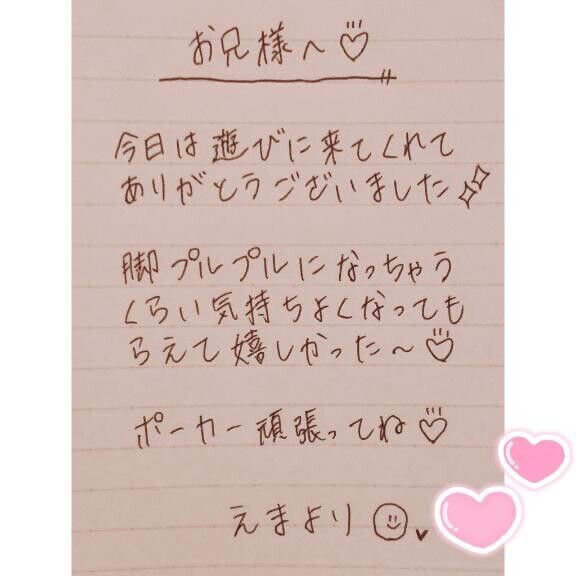 お兄様へ♡
今日は遊びに来てくれて
ありがとうございました
脚プルプルになっちゃう
くらい気持ちよくなっても
らえて嬉しかった〜♡
ポーカー頑張ってね♡
えまより